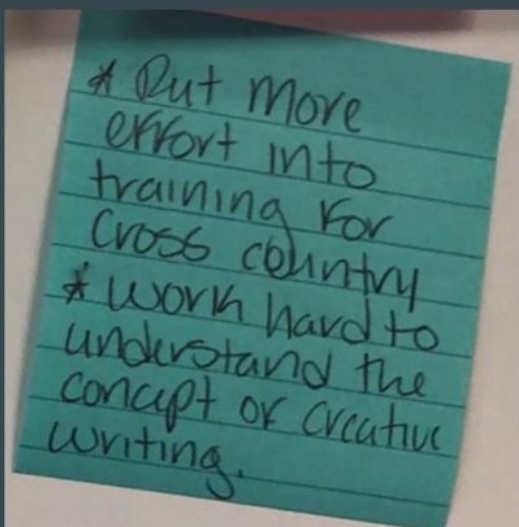 * Put more
effort into
training for
cross country
* Work hard to
understand the
concept of creative
writing.